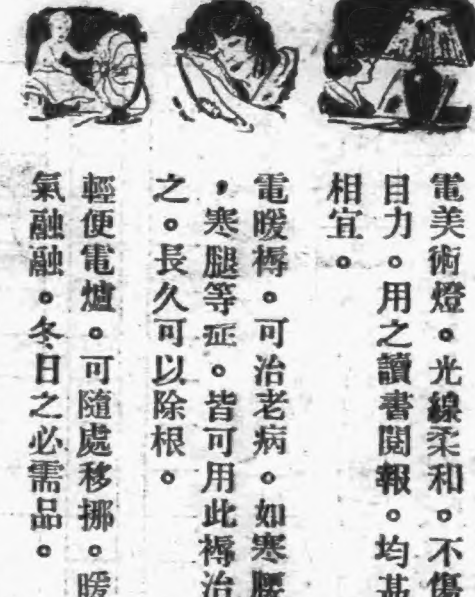 電美術燈。光線柔和。不傷
目力。用之讀書閱報。均甚
相宜。
電暖褥。可治老病。如寒腰
，寒腿等症。皆可用此褥治
之。長久可以除根。
輕便電爐。可隨處移挪。暖
氣融融。冬日之必需品。